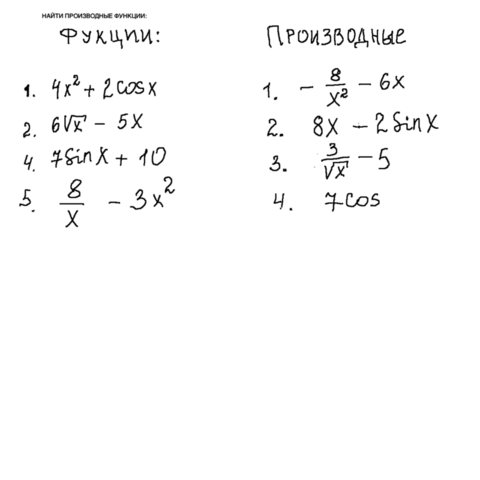 НАЙТИ ПРОИЗВОДНЫЕ ФУНКЦИИ:
ФУКЦИИ:
1. 4x² + 2cosx
2. 6√x - 5x
4. 7sinx + 10
5. 8/x - 3x²
ПРОИЗВОДНЫЕ
1. - 8/x² - 6x
2. 8x - 2sinx
3. 3/√x - 5
4. 7cos